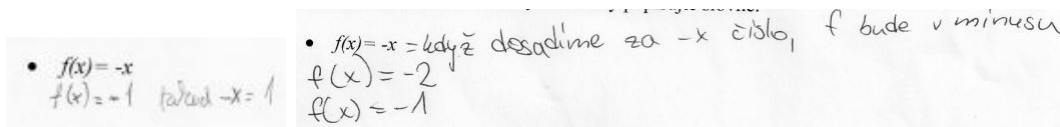 • f(x) = -x
f(x) = -1 pokud -x = 1
• f(x) = -x = když dosadíme za -x číslo, f bude v minusu
f(x) = -2
f(x) = -1